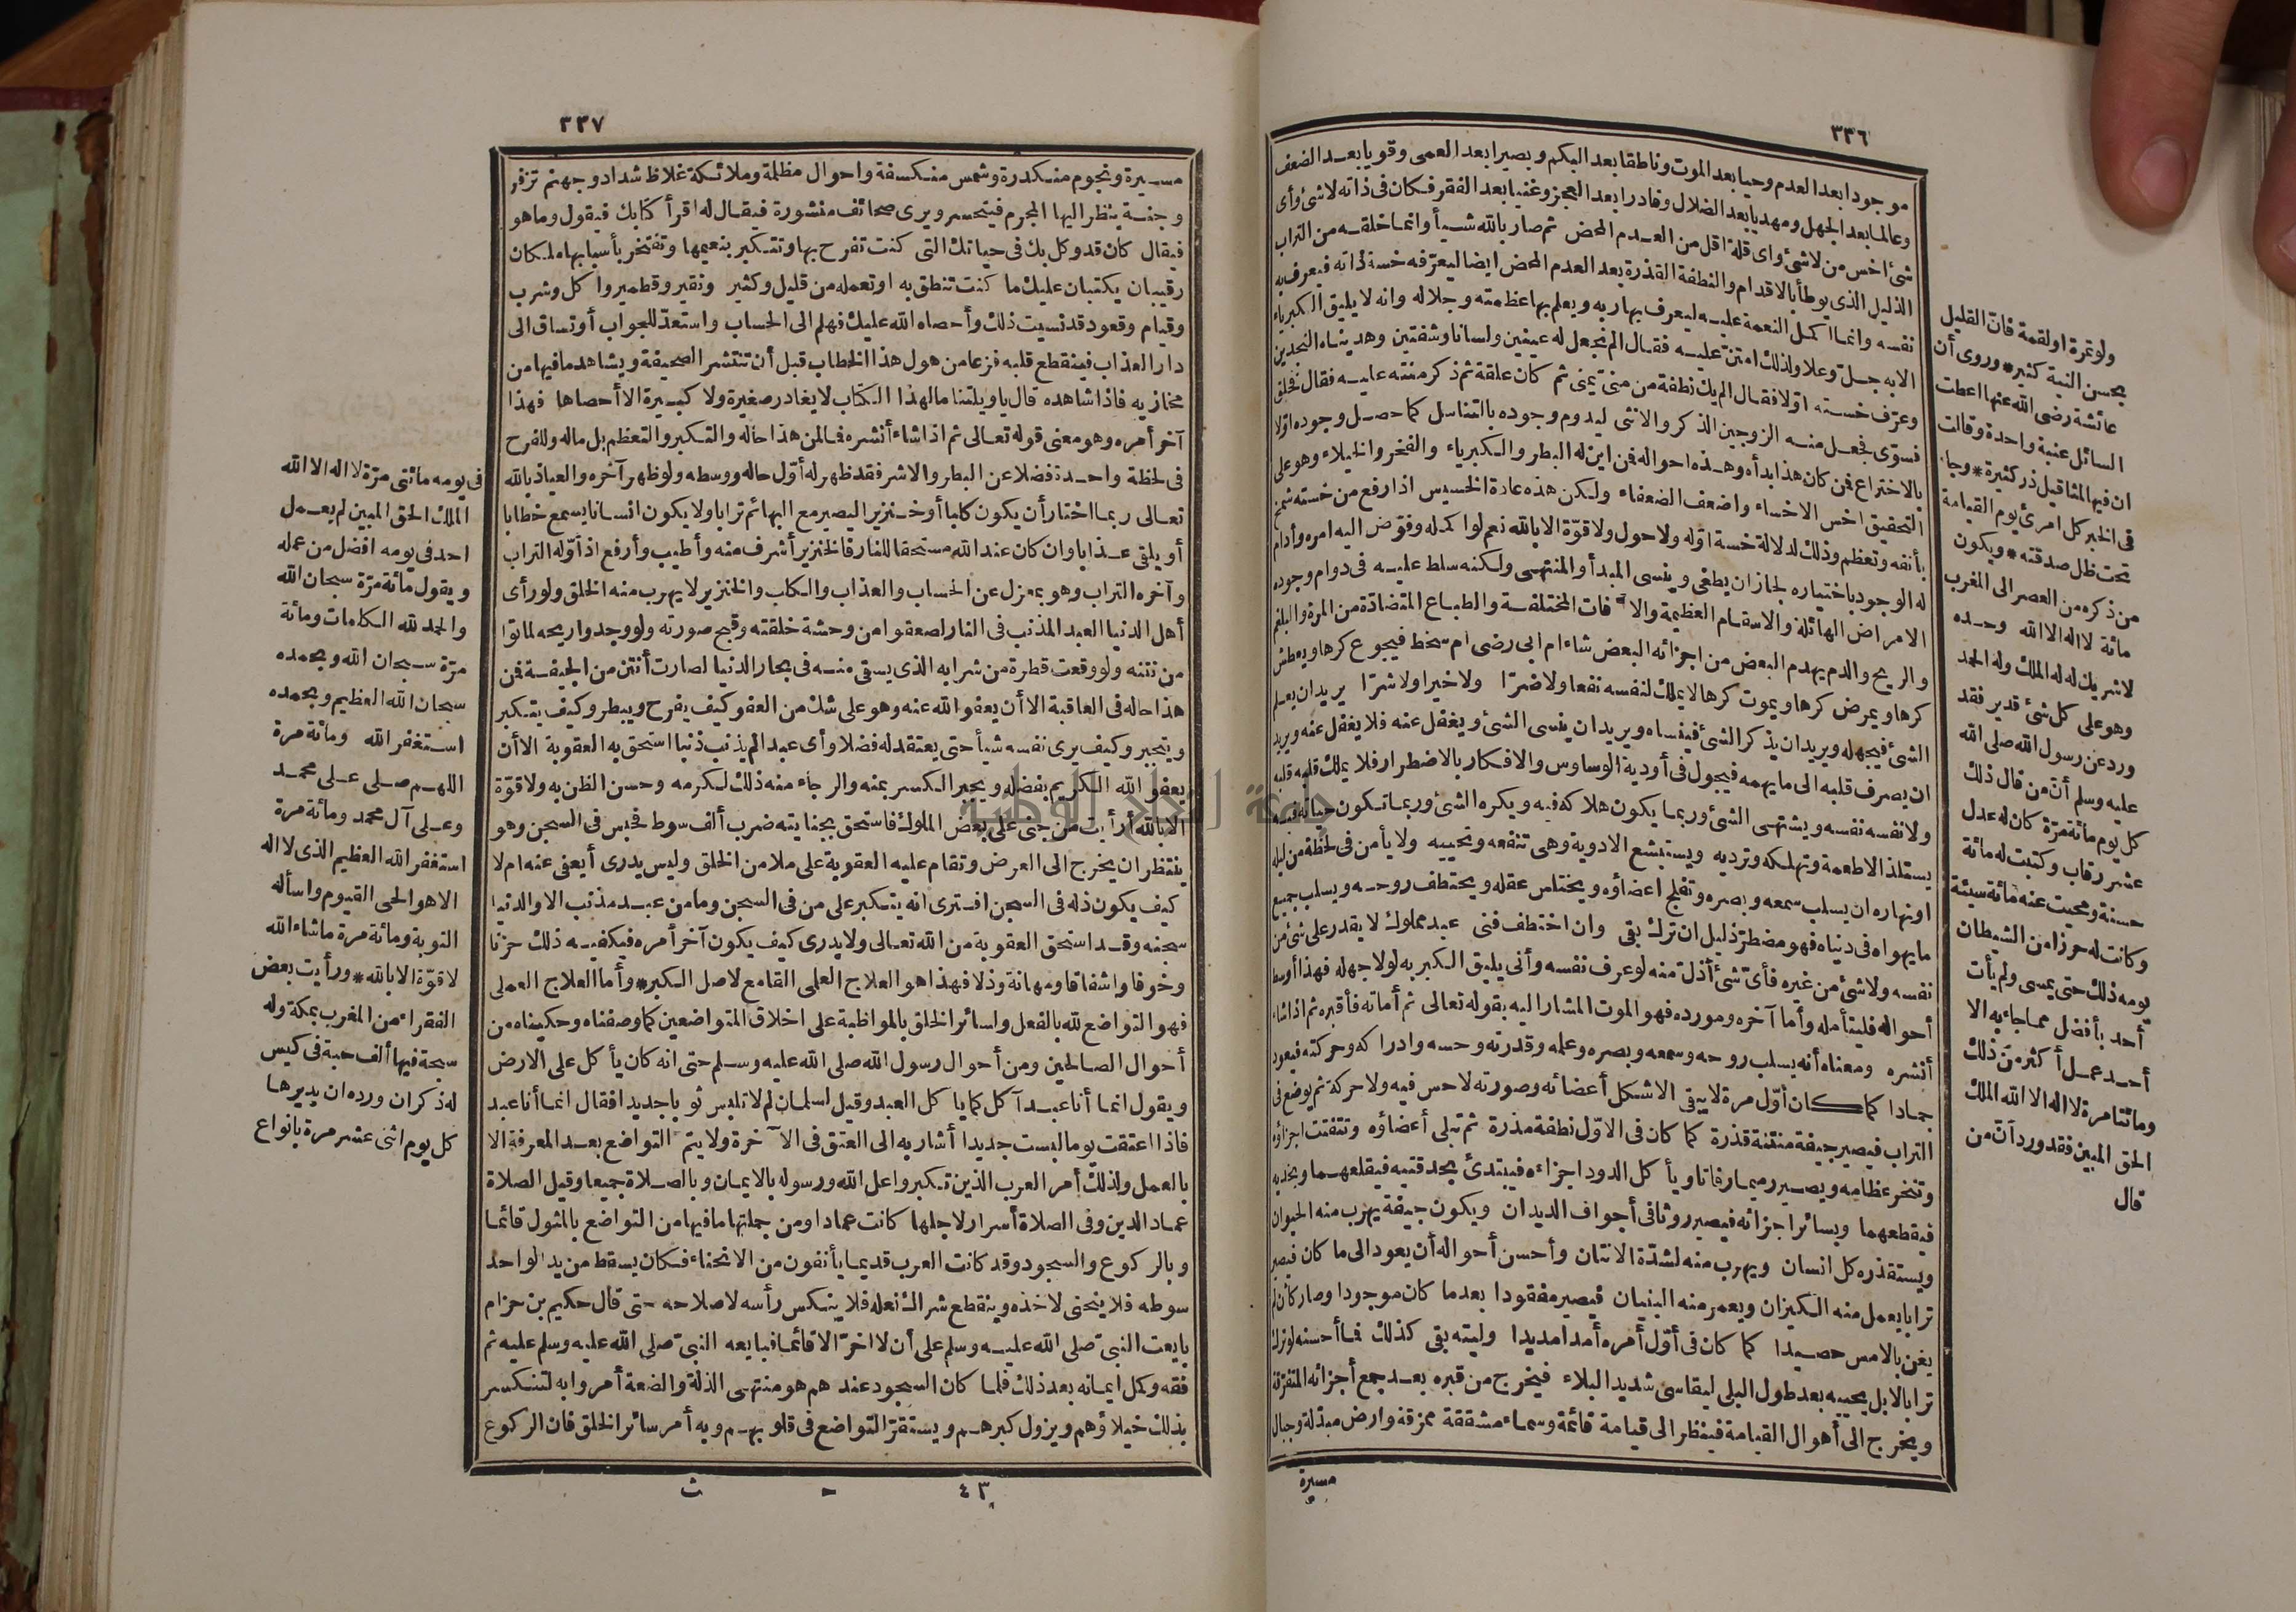 ٣٣٦
موجودا بعد العدم وحيا بعد الموت وناطقا بعد البكم وبصيرا بعد العمى وقويا بعد الضعف
وعالما بعد الجهل ومهديا بعد الضلال وقادرا بعد العجز وغنيا بعد الفقر فكان في ذاته لاشئ وأى
شئ اخس من لاشئ واى قلة اقل من العدم المحض ثم صار بالله شيأ وانما خلقه من التراب
الذليل الذى يوطأ بالاقدام والنطفة القذرة بعد العدم المحض ايضا ليعرّفه خسة ذاته فيعرف به
نفسه وانما اكمل النعمة عليه ليعرف بها ربه ويعلم بها عظمته وجلاله وانه لا يليق الكبرياء
الا به جل وعلا ولذلك امتن عليه فقال الم نجعل له عينين ولسانا وشفتين وهديناه النجدين
وعرّف خسته اوّلا فقال الم يك نطفة من منىّ يمنى ثم كان علقة ثم ذكر منته عليه فقال فخلق
فسوّى فجعل منه الزوجين الذكر والانثى ليدوم وجوده بالتناسل كما حصل وجوده اوّلا
بالاختراع فمن كان هذا بدأه وهذه احواله فمن اين له البطر والكبرياء والفخر والخيلاء وهو على
التحقيق اخس الاخساء واضعف الضعفاء ولكن هذه عادة الخسيس اذا رفع من خسته شمخ
بأنفه وتعظم وذلك لدلالة خسة اوّله ولا حول ولا قوّة الا بالله نعم لو اكمله وفوّض اليه امره وأدام
له الوجود باختياره لجاز ان يطغى وينسى المبدأ والمنتهى ولكنه سلط عليه فى دوام وجوده
الامراض الهائلة والاسقام العظيمة والآفات المختلفة والطباع المتضادّة من المرة والبلغم
والريح والدم يهدم البعض من اجزائه البعض شاء ام ابى رضى ام سخط فيجوع كرها ويعطش
كرها ويمرض كرها ويموت كرها لا يملك لنفسه نفعا ولا ضرّا ولا خيرا ولا شرّا يريد ان يعلم
الشئ فيجهله ويريد ان يذكر الشئ فينساه ويريد ان ينسى الشئ ويغفل عنه فلا يغفل عنه ويريد
ان يصرف قلبه الى ما يهمه فيجول فى أودية الوساوس والافكار بالاضطرار فلا يملك قلبه قلبه
ولا نفسه نفسه ويشتهى الشئ وربما يكون هلاكه فيه ويكره الشئ وربما تكون حياته فيه
يستلذ الاطعمة وتهلكه وترديه ويستبشع الادوية وهى تنفعه وتحييه ولا يأمن فى لحظة من ليله
او نهاره ان يسلب سمعه وبصره وتفلج اعضاؤه ويختلس عقله ويختطف روحه ويسلب جميع
ما يهواه فى دنياه فهو مضطرّ ذليل ان ترك بقى وان اختطف فنى عبد مملوك لا يقدر على شئ من
نفسه ولا شئ من غيره فأىّ شئ أذلّ منه لو عرف نفسه وأنى يليق الكبر به لولا جهله فهذا أوسط
أحواله فليتأمله وأما آخره ومورده فهو الموت المشار اليه بقوله تعالى ثم أماته فأقبره ثم اذا شاء
أنشره ومعناه أنه يسلب روحه وسمعه وبصره وعلمه وقدرته وحسه وادراكه وحركته فيعود
جمادا كما كان أوّل مرة لا يبقى الا شكل أعضائه وصورته لا حس فيه ولا حركة ثم يوضع فى
التراب فيصير جيفة منتنة قذرة كما كان فى الاوّل نطفة مذرة ثم تبلى أعضاؤه وتتفتت اجزاؤه
وتنخر عظامه ويصير رميما رفاتا ويأكل الدود اجزاءه فيبتدئ بحدقتيه فيقلعهما وبخديه
فيقطعهما وبسائر اجزائه فيصير روثا فى أجواف الديدان ويكون جيفة يهرب منه الحيوان
ويستقذره كل انسان ويهرب منه لشدّة الانتان وأحسن أحواله أن يعود الى ما كان فيصير
ترابا يعمل منه الكيزان ويعمر منه البنيان فيصير مفقودا بعدما كان موجودا وصار كأن لم
يغن بالامس حصيدا كما كان فى أوّل أمره أمدا مديدا وليته بقى كذلك فما أحسنه لو ترك
ترابا لا بل يحييه بعد طول البلى ليقاسى شديد البلاء فيخرج من قبره بعد جمع أجزائه المتفرّقة
ويخرج الى أهوال القيامة فينظر الى قيامة قائمة وسماء مشققة ممزقة وارض مبدّلة وجبال
مسيرة
ولو تمرة او لقمة فانّ القليل
بحسن النية كثير * وروى أن
عائشة رضى الله عنها اعطت
السائل عنبة واحدة وقالت
ان فيها لمثاقيل ذر كثيرة * وجاء
فى الخبر كل امرئ يوم القيامة
تحت ظل صدقته * ويكون
من ذكره من العصر الى المغرب
مائة لا اله الا الله وحده
لا شريك له له الملك وله الحمد
وهو على كل شئ قدير فقد
ورد عن رسول الله صلى الله
عليه وسلم أن من قال ذلك
كل يوم مائة مرّة كان له عدل
عشر رقاب وكتبت له مائة
حسنة ومحيت عنه مائة سيئة
وكانت له حرزا من الشيطان
يومه ذلك حتى يمسى ولم يأت
أحد بأفضل مما جاء به الا
أحد عمل أكثر من ذلك
ومائتا مرة لا اله الا الله الملك
الحق المبين فقد ورد أن من
قال
٣٣٧
مسيرة ونجوم منكدرة وشمس منكسفة واحوال مظلمة وملائكة غلاظ شداد وجهنم تزفر
وجنة ينظر اليها المجرم فيتحسر ويرى صحائف منشورة فيقال له اقرأ كتابك فيقول وما هو
فيقال كان قد وكل بك فى حياتك التى كنت تفرح بها وتتكبر بنعيمها وتفتخر بأسبابها ملكان
رقيبان يكتبان عليك ما كنت تنطق به او تعمله من قليل وكثير ونقير وقطمير وأكل وشرب
وقيام وقعود قد نسيت ذلك وأحصاه الله عليك فهلم الى الحساب واستعدّ للجواب أو تساق الى
دار العذاب فينقطع قلبه فزعا من هول هذا الخطاب قبل أن تنتشر الصحيفة ويشاهد ما فيها من
مخازيه فاذا شاهده قال يا ويلتنا ما لهذا الكتاب لا يغادر صغيرة ولا كبيرة الا أحصاها فهذا
آخر أمره وهو معنى قوله تعالى ثم اذا شاء أنشره فما لمن هذا حاله والتكبر والتعظم بل ما له وللفرح
فى لحظة واحدة فضلا عن البطر والاشر فقد ظهر له أوّل حاله ووسطه ولو ظهر آخره والعياذ بالله
تعالى ربما اختار أن يكون كلبا أو خنزير اليصير مع البهائم ترابا ولا يكون انسانا يسمع خطابا
أو يلقى عذابا وان كان عند الله مستحقا للنار فالخنزير أشرف منه وأطيب وأرفع اذ أوّله التراب
وآخره التراب وهو بمعزل عن الحساب والعذاب والكلب والخنزير لا يهرب منه الخلق ولو رأى
أهل الدنيا العبد المذنب فى النار لصعقوا من وحشة خلقته وقبح صورته ولو وجدوا ريحه لماتوا
من نتنه ولو وقعت قطرة من شرابه الذى يسقى منه فى بحار الدنيا لصارت أنتن من الجيفة فمن
هذا حاله فى العاقبة الا أن يعفو الله عنه وهو على شك من العفو كيف يفرح ويبطر وكيف يتكبر
ويتجبر وكيف يرى نفسه شيأ حتى يعتقد له فضلا وأى عبد لم يذنب ذنبا استحق به العقوبة الا أن
يعفو الله الكريم بفضله ويجبر الكسر بمنه والرجاء منه ذلك لكرمه وحسن الظن به ولا قوّة
الا بالله أرأيت من جنى على بعض الملوك فاستحق بجنايته ضرب ألف سوط فحبس فى السجن وهو
ينتظر ان يخرج الى العرض وتقام عليه العقوبة على ملا من الخلق وليس يدرى أيعفى عنه ام لا
كيف يكون ذله فى السجن افترى انه يتكبر على من فى السجن وما من عبد مذنب الا والدنيا
سجنه وقد استحق العقوبة من الله تعالى ولا يدرى كيف يكون آخر أمره فيكفيه ذلك حزنا
وخوفا واشفاقا ومهانة وذلا فهذا هو العلاج العلمى القامع لاصل الكبر * وأما العلاج العملى
فهو التواضع لله بالفعل ولسائر الخلق بالمواظبة على اخلاق المتواضعين كما وصفناه وحكيناه من
أحوال الصالحين ومن أحوال رسول الله صلى الله عليه وسلم حتى انه كان يأكل على الارض
ويقول انما أنا عبد آكل كما يأكل العبد وقيل لسلمان لم لا تلبس ثوبا جديدا فقال انما أنا عبد
فاذا اعتقت يوما لبست جديدا أشار به الى العتق فى الآخرة ولا يتم التواضع بعد المعرفة الا
بالعمل ولذلك أمر العرب الذين تكبروا على الله ورسوله بالايمان وبالصلاة جميعا وقيل الصلاة
عماد الدين وفى الصلاة أسرار لاجلها كانت عمادا ومن جملتها ما فيها من التواضع بالمثول قائما
وبالركوع والسجود وقد كانت العرب قديما يأنفون من الانحناء فكان يسقط من يد الواحد
سوطه فلا ينحنى لاخذه وينقطع شراك نعله فلا ينكس رأسه لاصلاحه حتى قال حكيم بن حزام
بايعت النبىّ صلى الله عليه وسلم على أن لا اخرّ الا قائما فبايعه النبىّ صلى الله عليه وسلم عليه ثم
فقه وكمل ايمانه بعد ذلك فلما كان السجود عندهم هو منتهى الذلة والضعة أمروا به لتنكسر
بذلك خيلاؤهم ويزول كبرهم ويستقرّ التواضع فى قلوبهم وبه أمر سائر الخلق فان الركوع
٤٣ - ث
فى يومه مائتى مرّة لا اله الا الله
الملك الحق المبين لم يعمل
احد فى يومه افضل من عمله
ويقول مائة مرّة سبحان الله
والحمد لله الكلمات ومائة
مرّة سبحان الله وبحمده
سبحان الله العظيم وبحمده
استغفر الله ومائة مرة
اللهم صلى على محمد
وعلى آل محمد ومائة مرة
استغفر الله العظيم الذى لا اله
الا هو الحى القيوم واسأله
التوبة ومائة مرة ما شاء الله
لا قوّة الا بالله * ورأيت بعض
الفقراء من المغرب بمكة وله
سبحة فيها ألف حبة فى كيس
له ذكر ان ورده ان يديرها
كل يوم اثنى عشر مرة بانواع